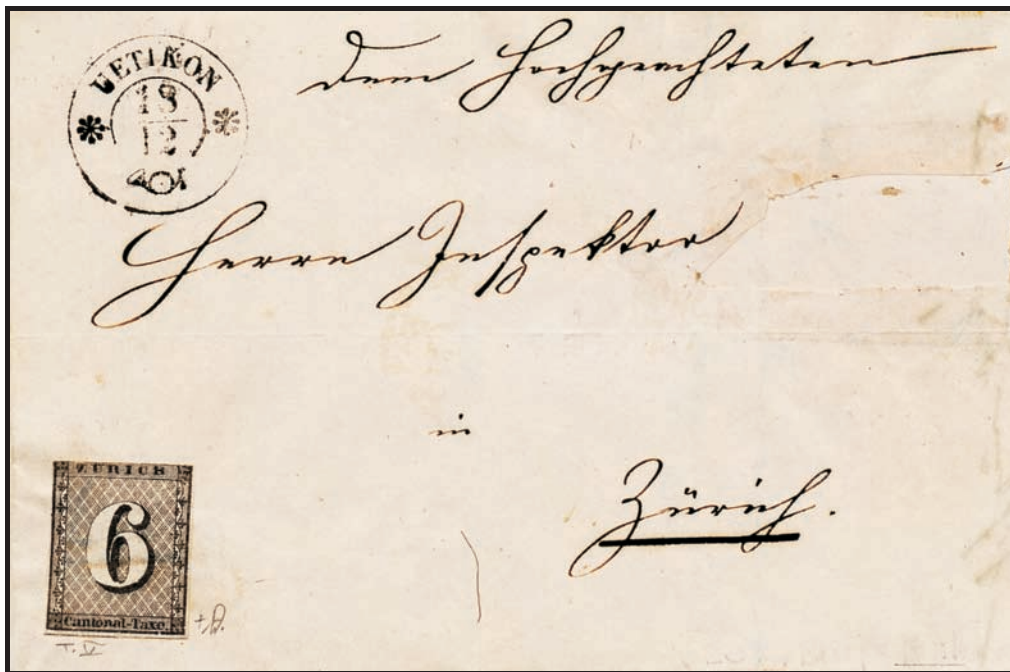 UETIKON
18
12
dem Hochgeachteten
Herrn Inspektor
in
Zürich.
ZÜRICH
6
Cantonal-Taxe.
T. V